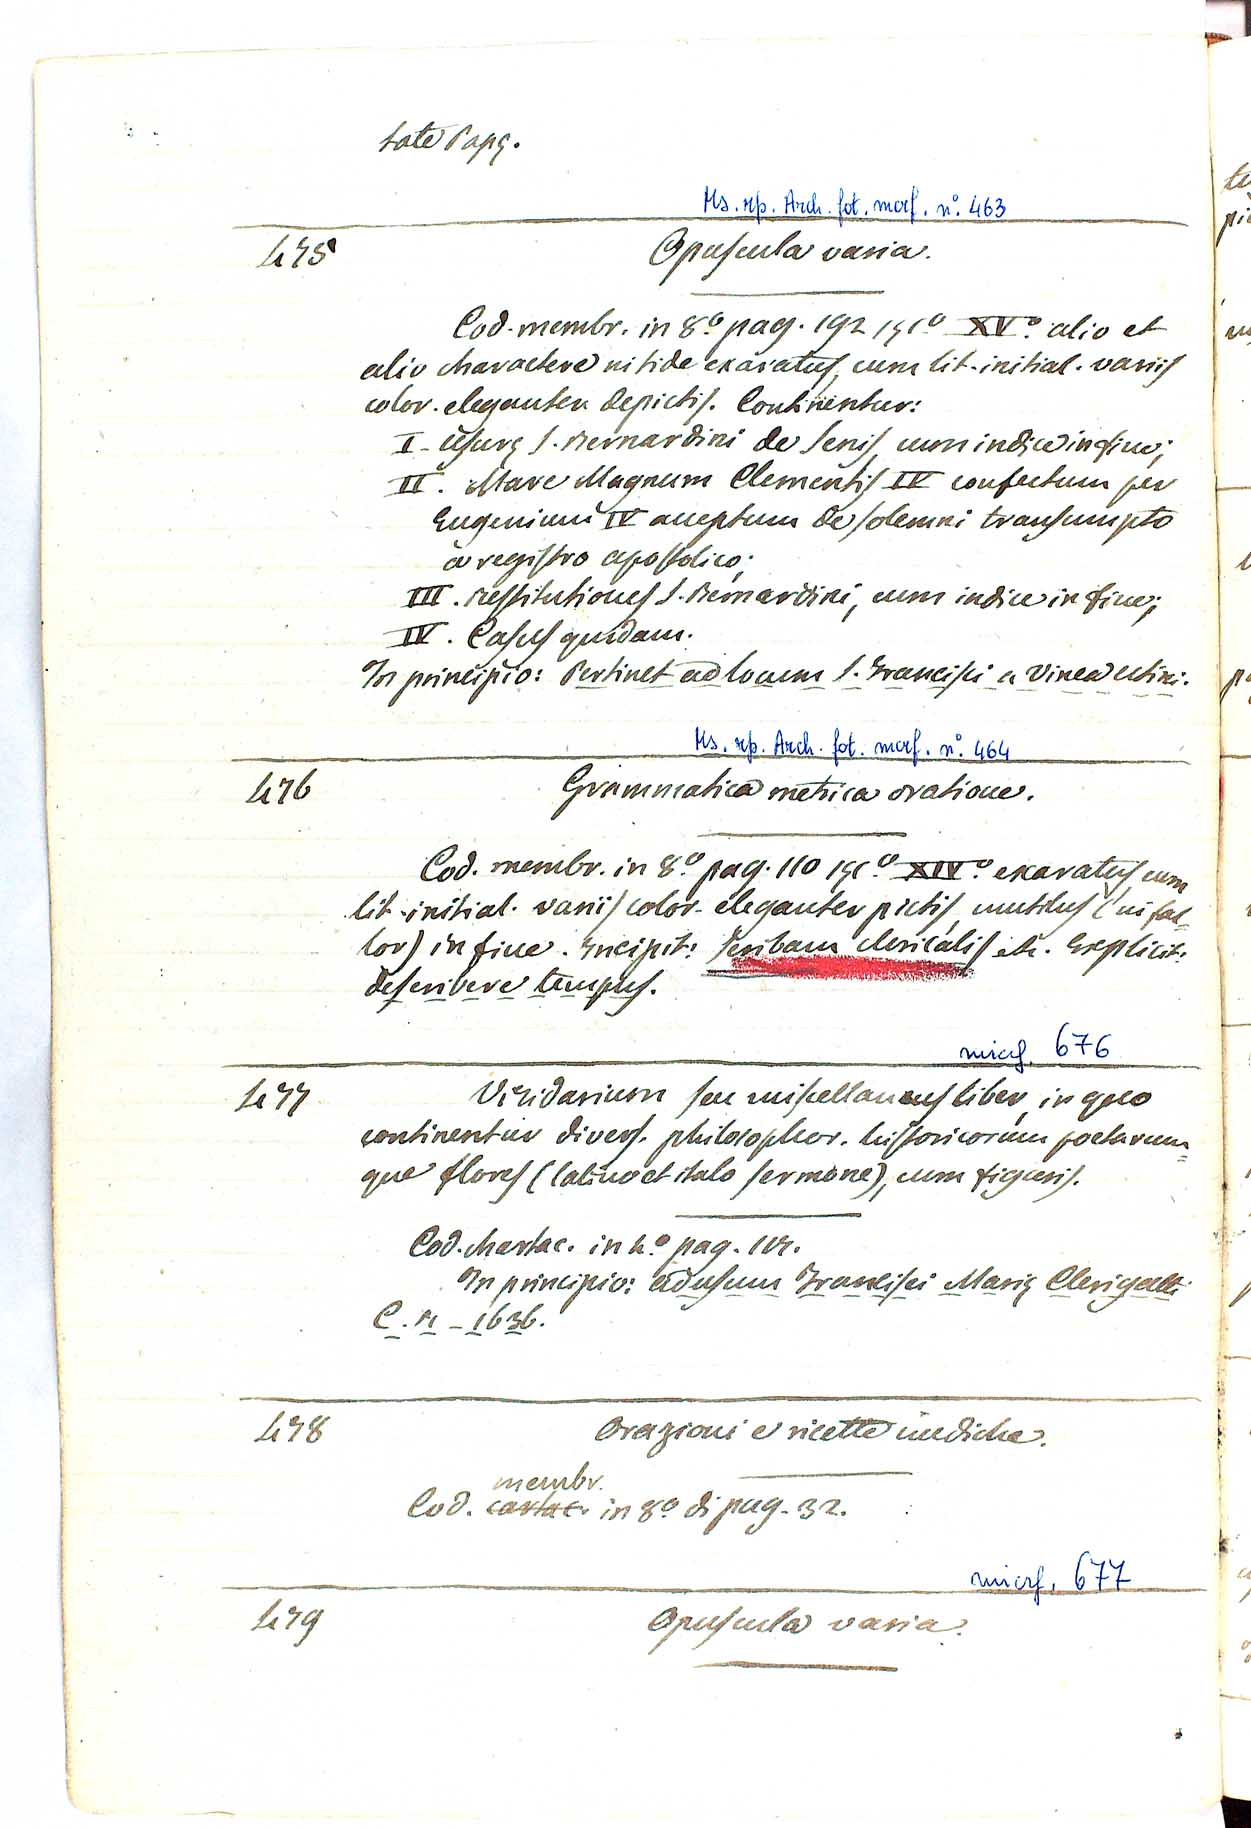 tate Papę.
Ms. rp. Arch. fot. micrf. n°. 463
475
Opuscula varia.
Cod. membr. in 8.° pag. 192 sęc.° XV.° alio et
alio charactere nitide exaratus, cum lit. initial. variis
color. eleganter depictis. Continentur:
I. Usurę S. Bernardini de Senis, cum indice in fine;
II. Mare Magnum Clementis IV confectum per
Eugenium IV acceptum de solemni transumpto
a registro apostolico;
III. Restitutiones S. Bernardini, cum indice in fine;
IV. Casus quidam.
In principio: Pertinet ad locum S. Francisci a Vinea Utini.
Ms. rp. Arch. fot. micrf. n°. 464
476
Grammatica metrica oratione.
Cod. membr. in 8.° pag. 110 sęc.° XIV.° exaratus, cum
lit. initial. variis color. eleganter pictis, mutilus (ni fal-
lor) in fine. Incipit: Scribam clericalis etc. Explicit:
describere tempus.
micrf. 676
477
Viridarium seu miscellaneus liber, in quo
continentur divers. philosophor. historicorum poetarum=
que flores (latino et italo sermone), cum figuris.
Cod. chartac. in 4.° pag. 117.
In principio: ad usum Francisci Marię Clerigatti
C. R - 1636.
478
Orazioni e ricette mediche.
membr.
Cod. cartac. in 8° di pag. 32.
micrf. 677
479
Opuscula varia.